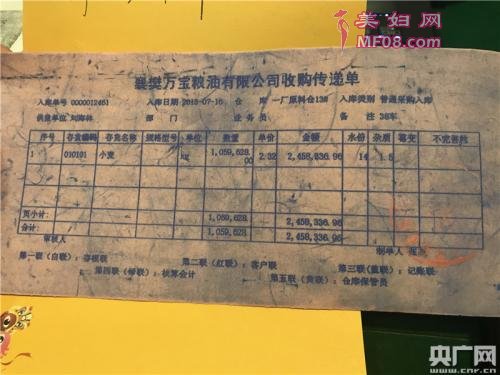 美妇网
MF08.com
襄樊万宝粮油有限公司收购传递单
入库单号 0000012461 入库日期 2015-07-16 仓 库 一厂原料仓13# 入库类别 普通采购入库
供货单位 刘海林 部 门 业 务 员 备 注 38车
序号 存货编码 存货名称 规格型号 单位 数量 单价 金额 水份 杂质 霉变 不完善粒
1 010101 小麦 kg 1,059,628.00 2.32 2,458,336.96 14 1.5
页小计: 1,059,628. 2,458,336.96
合计: 1,059,628. 2,458,336.96
审核人 制单人
第一联(白联):存根联 第二联(红联):客户联 第三联(蓝联):记账联
第四联(绿联):核算会计 第五联(黄联):仓库保管员
央广网
www.cnr.cn